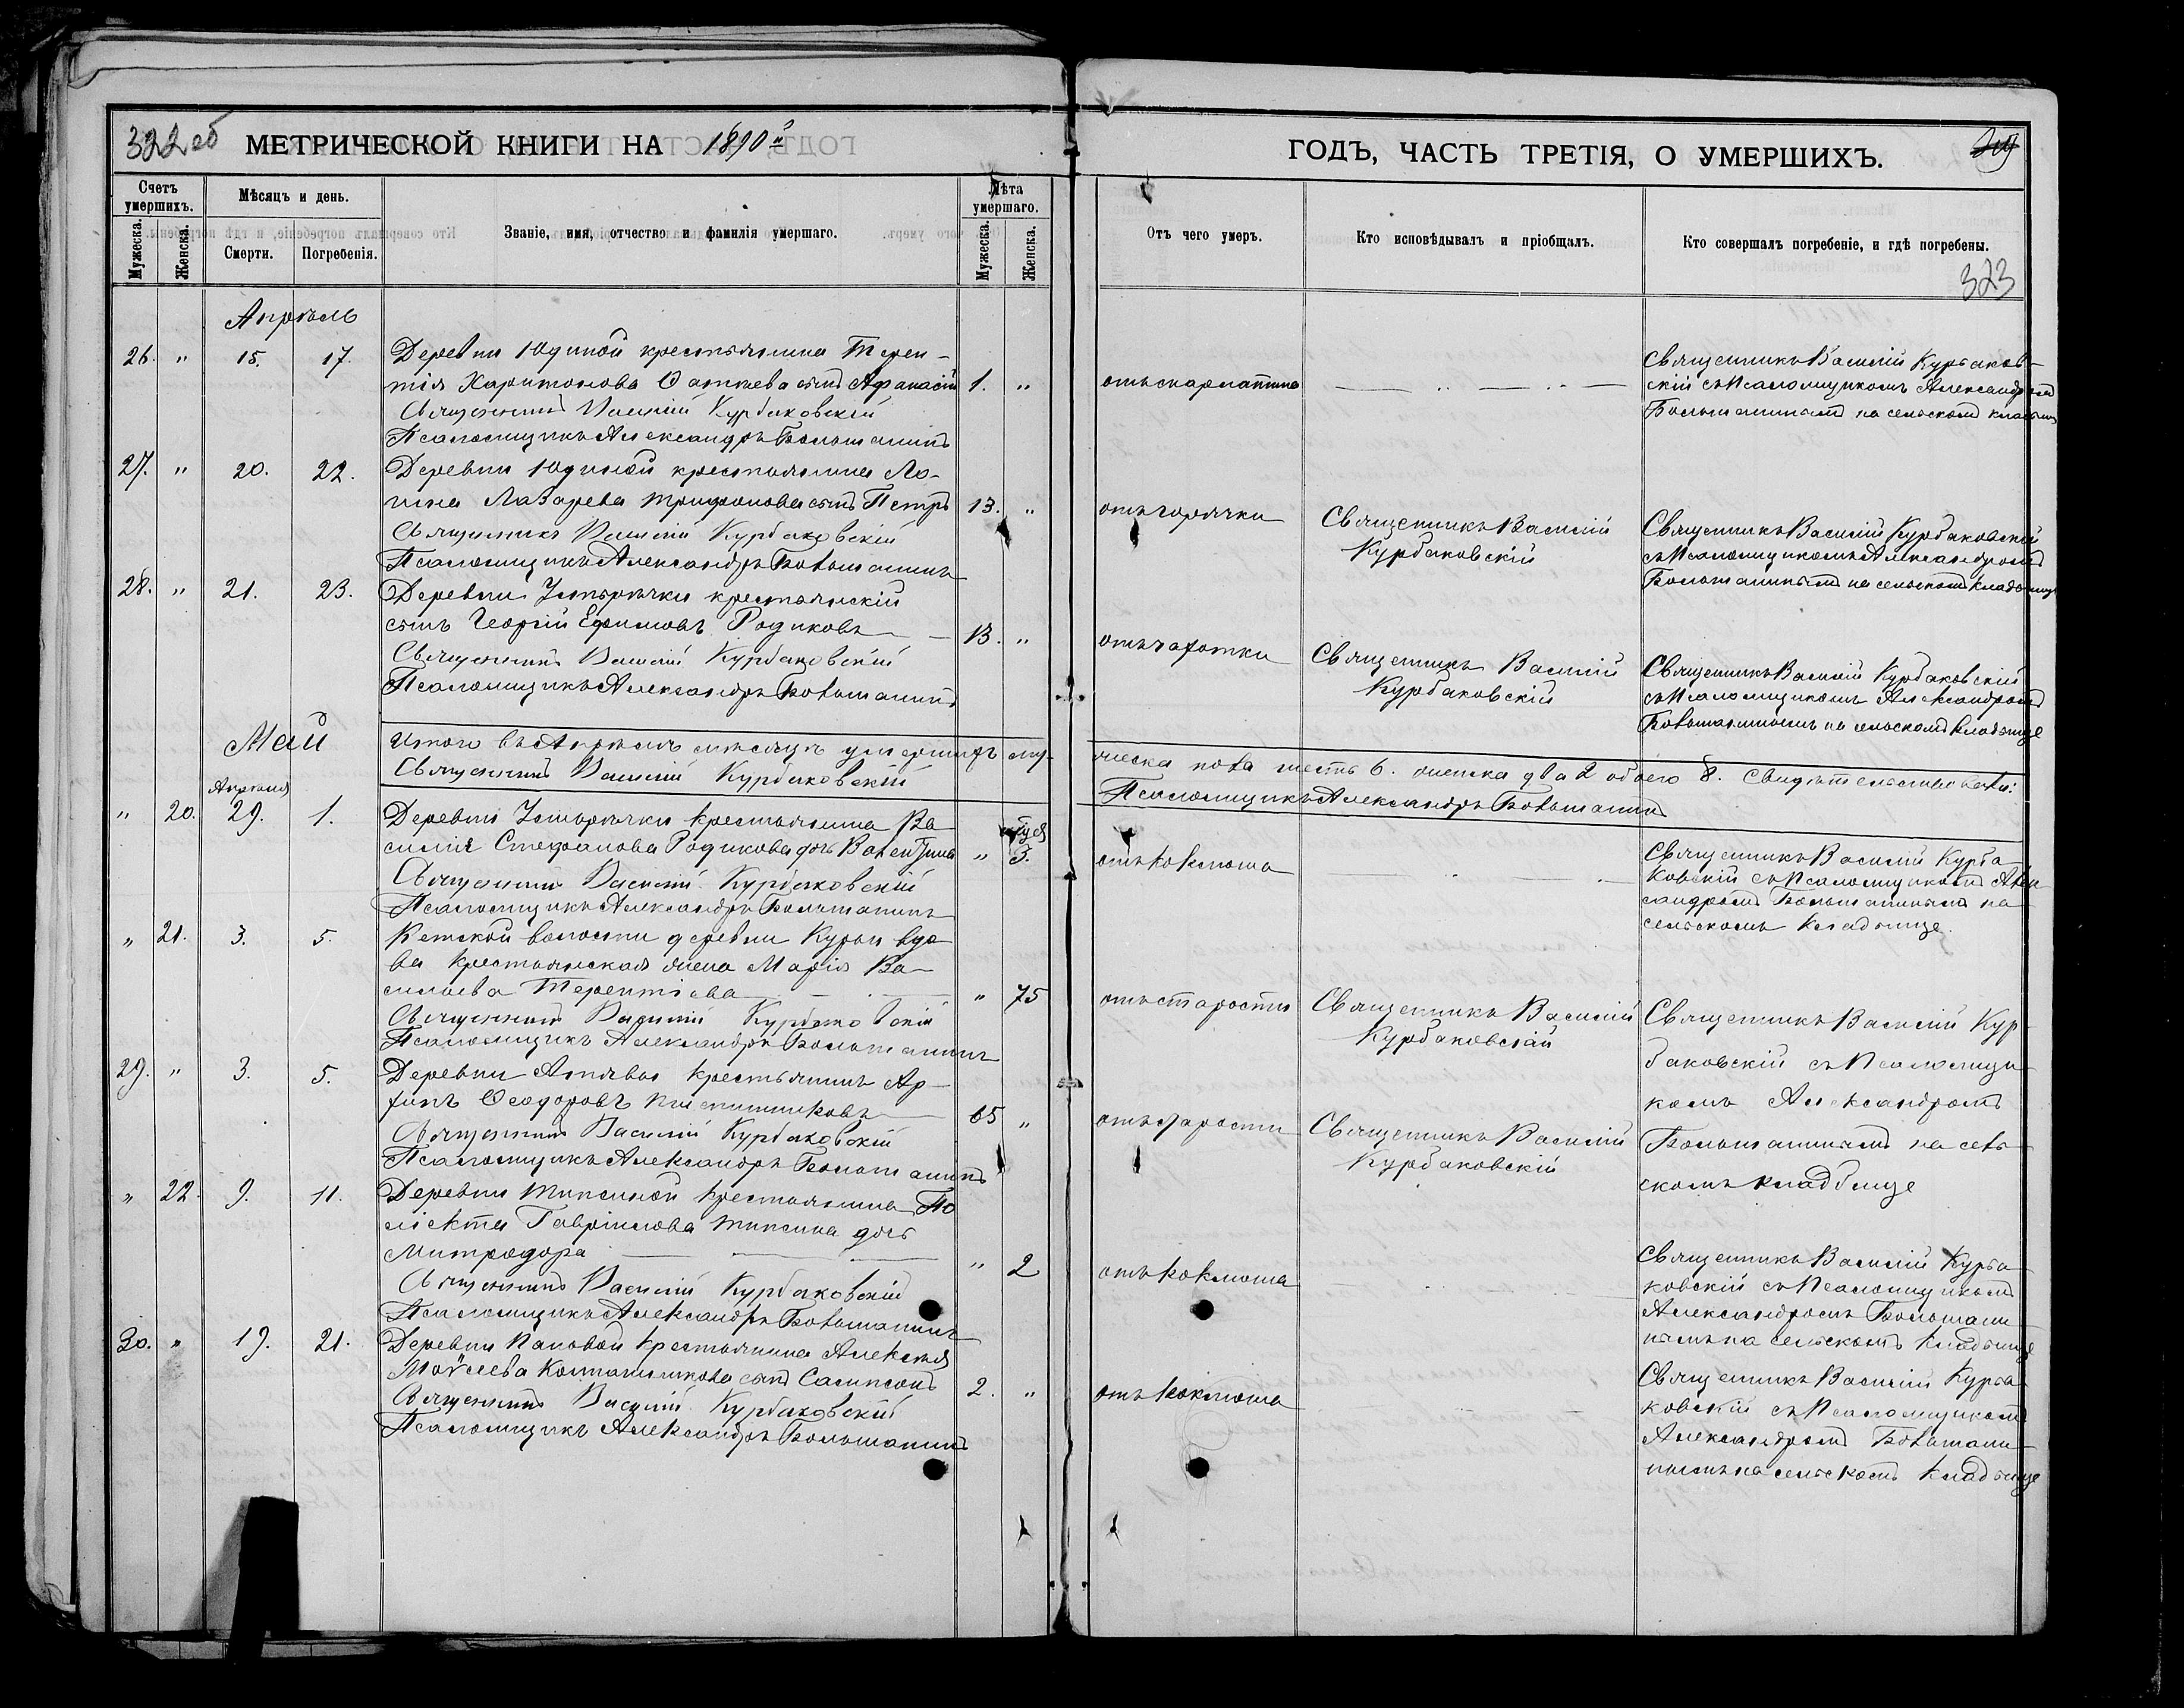 322 об МЕТРИЧЕСКОЙ КНИГИ НА 1890й
ГОДЪ, ЧАСТЬ ТРЕТІЯ, О УМЕРШИХЪ.
Счетъ умершихъ.
Мужеска.
Женска.
Мѣсяцъ и день.
Смерти.
Погребенія.
Званіе, имя, отчество и фамилія умершаго.
Лѣта умершаго.
Мужеска.
Женска.
Отъ чего умеръ.
Кто исповѣдывалъ и пріобщалъ.
Кто совершалъ погребеніе, и гдѣ погребены.
323
Апрѣль
26. " 15. 17. Деревни Юдиной крестьянина Терен-
тія Харитонова сынъ Афанасій 1. "
Священникъ Василій Курбаковскій
Псаломщикъ Александръ Большанинъ
отъ скарлатина
Священникъ Василій Курбаков-
скій съ Псаломщикомъ Александромъ
Большанинымъ на сельскомъ кладбищѣ
27. " 20. 22. Деревни Юдиной крестьянина Ло-
гина Лазарева Трифонова сынъ Петръ 13. "
Священникъ Василій Курбаковскій
Псаломщикъ Александръ Большанинъ
отъ горячки
Священникъ Василій
Курбаковскій
Священникъ Василій Курбаковскій
съ Псаломщикомъ Александромъ
Большанинымъ на сельскомъ кладбищѣ
28. " 21. 23. Деревни Устьрѣчки крестьянскій
сынъ Георгій Ефимовъ Родиковъ 13. "
Священникъ Василій Курбаковскій
Псаломщикъ Александръ Большанинъ
отъ чахотки
Священникъ Василій
Курбаковскій
Священникъ Василій Курбаковскій
съ Псаломщикомъ Александромъ
Большанинымъ на сельскомъ кладбищѣ
Май
Итого въ Апрѣлѣ мѣсяцѣ умершихъ му-
жеска пола шесть 6. женска два 2 обоего 8. Свидѣтельствовали:
Священникъ Василій Курбаковскій
Псаломщикъ Александръ Большанинъ
Апрѣля
" 20. 29. 1. Деревни Устьрѣчки крестьянина Ва
силія Стефанова Родикова дочь " 3.
Священникъ Василій Курбаковскій
Псаломщикъ Александръ Большанинъ
отъ коклюша
Священникъ Василій Курба-
ковскій съ Псаломщикомъ Алек-
сандромъ Большанинымъ на
сельскомъ кладбищѣ.
" 21. 3. 5. Кетской волости деревни вдо-
ва крестьянская жена Марія Ва-
сильева Терентіева " 75
Священникъ Василій Курбаковскій
Псаломщикъ Александръ Большанинъ
отъ старости
Священникъ Василій
Курбаковскій
Священникъ Василій Кур-
баковскій съ Псаломщи-
комъ Александромъ
Большанинымъ на сель-
скомъ кладбищѣ
29. " 3. 5. Деревни крестьянинъ Ар-
хипъ Ѳеодоровъ 65 "
Священникъ Василій Курбаковскій
Псаломщикъ Александръ Большанинъ
отъ старости
Священникъ Василій
Курбаковскій
" 22. 9. 11. Деревни Типсиной крестьянина По
ліекта Гавріилова Типсина дочь
Митродора " 2
Священникъ Василій Курбаковскій
Псаломщикъ Александръ Большанинъ
отъ коклюша
Священникъ Василій Курба-
ковскій съ Псаломщикомъ
Александромъ Большани-
нымъ на сельскомъ кладбищѣ
30. " 19. 21. Деревни Пановой крестьянина Алексѣя
Моѵсеева сынъ Сампсонъ 2. "
Священникъ Василій Курбаковскій
Псаломщикъ Александръ Большанинъ
отъ коклюша
Священникъ Василій Курба-
ковскій съ Псаломщикомъ
Александромъ Большани-
нымъ на сельскомъ кладбищѣ